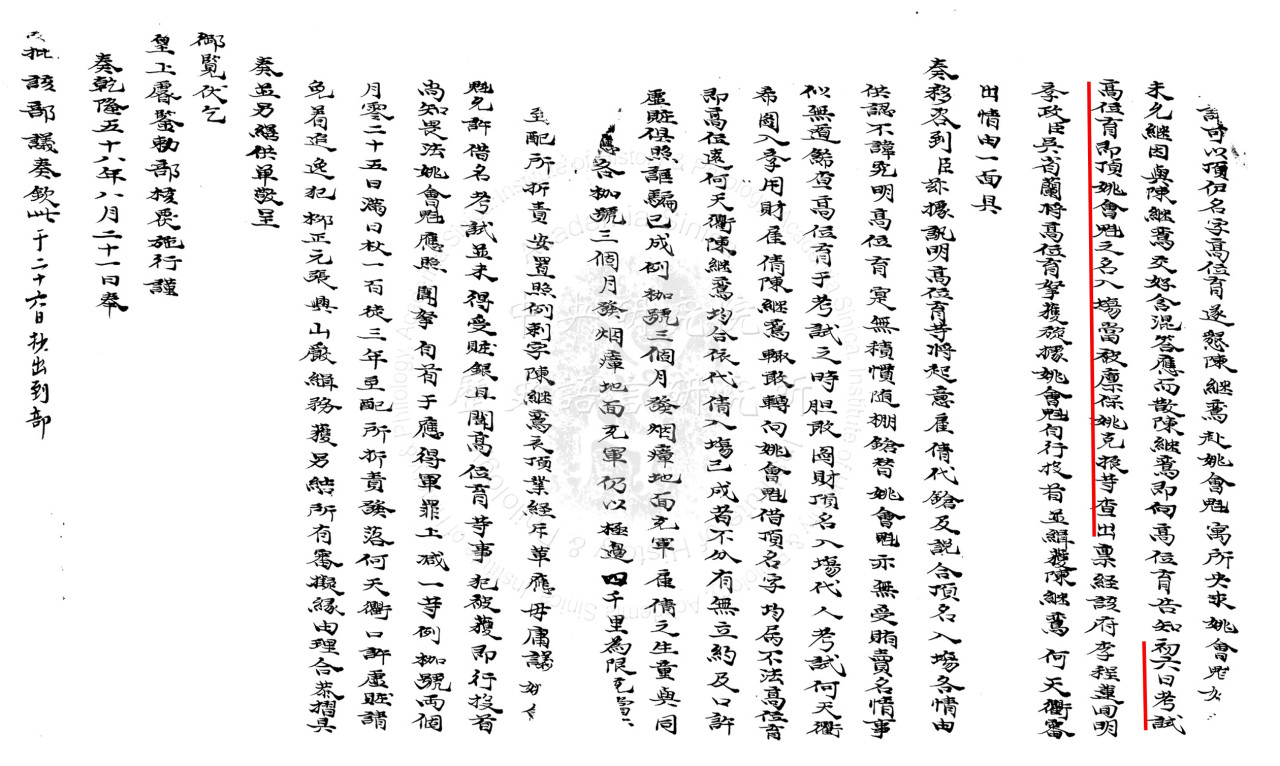 許可以頂伊名字高位育遂懇陳継鳶赴姚會魁寓所央求姚會魁
未允継因與陳継鳶交好含混答應而散陳継鳶即向高位育告知初六日考試
高位育即頂姚會魁之名入塲當被廩保姚克振等查出禀經該府李程薳回明
學政臣吳省蘭將高位育拏獲旋據姚會魁自行投首並緝獲陳継鳶何天衢審
出情由一面具
奏移咨到臣玆據訊明高位育等將起意雇倩代鎗及說合頂名入塲各情由
供認不諱究明高位育寔無積慣随棚鎗替姚會魁亦無受賄賣名情事
似無遁餙查高位育于考試之時胆敢圖財頂名入塲代人考試何天衢
希圖入學用財雇倩陳継鳶輙敢轉向姚會魁借頂名字均属不法高位育
即高位遠何天衢陳継鳶均合依代倩入塲已成者不分有無立約及口許
虛賍俱照誆騙已成例枷號三個月發烟瘴地面充軍雇倩之生童與同
應各枷號三個月發烟瘴地面充軍仍以極邊四千里為限
至配所折責安置照例刺字陳継鳶衣頂業經斥革應毋庸議
魁允許借名考試並未得受賍銀且聞高位育等事犯被獲即行投首
尚知畏法姚會魁應照聞拏自首于應得軍罪上减一等例枷號兩個
月零二十五日滿日杖一百徒三年至配所折責發落何天衢口許虛賍請
免着追逸犯柳正元張興山嚴緝務獲另結所有審擬緣由理合恭摺具
奏並另繕供單敬呈
御覧伏乞
皇上睿鑒勅部核覆施行謹
奏乾隆五十八年八月二十一日奉
硃批該部議奏欽此于二十六日抄出到部
中央研究院
歷史語言研究所